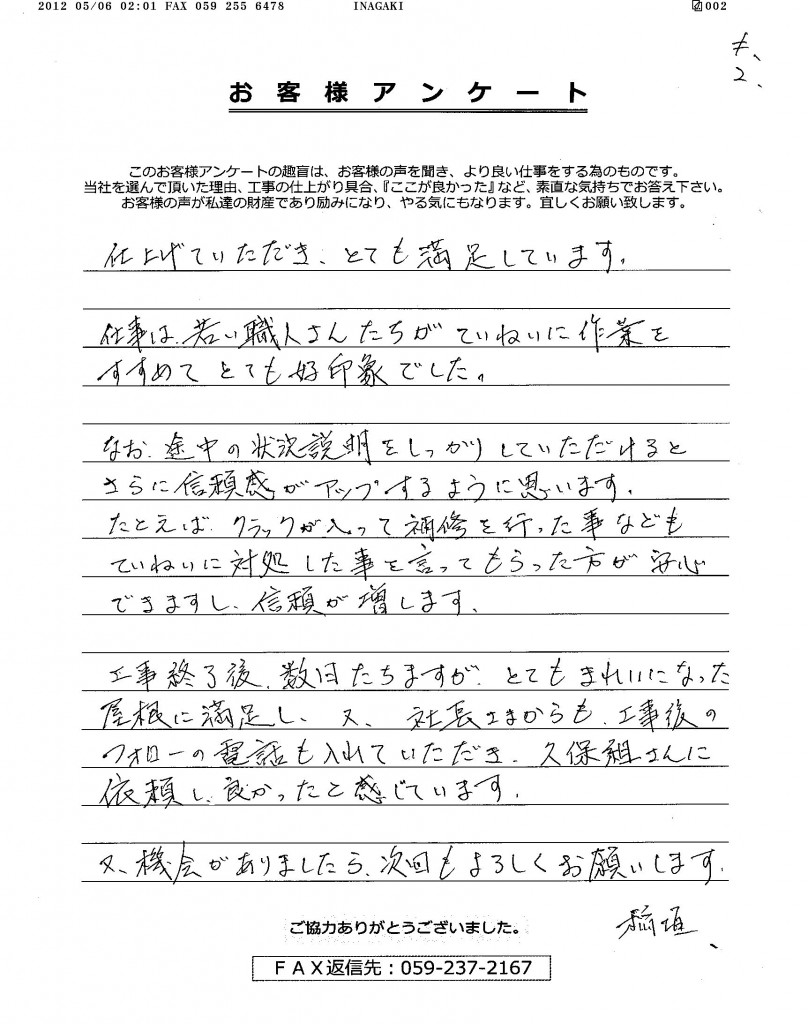 2012 05/06 02:01 FAX 059 255 6478 INAGAKI 002
2、
お客様アンケート
このお客様アンケートの趣旨は、お客様の声を聞き、より良い仕事をする為のものです。
当社を選んで頂いた理由、工事の仕上がり具合、『ここが良かった』など、素直な気持ちでお答え下さい。
お客様の声が私達の財産であり励みになり、やる気にもなります。宜しくお願い致します。
仕上げていただき、とても満足しています。
仕事は、若い職人さんたちがていねいに作業を
すすめてとても好印象でした。
なお、途中の状況説明をしっかりしていただけると
さらに信頼感がアップするように思います。
たとえば、クラックが入って補修を行った事なども
ていねいに対処した事を言ってもらった方が安心
できますし、信頼が増します。
工事終了後、数日たちますが、とてもきれいになった
屋根に満足し、又、社長さまからも、工事後の
フォローの電話も入れていただき、久保組さんに
依頼し、良かったと感じています。
又、機会がありましたら、次回もよろしくお願いします。
稲垣
ご協力ありがとうございました。
FAX返信先：059-237-2167